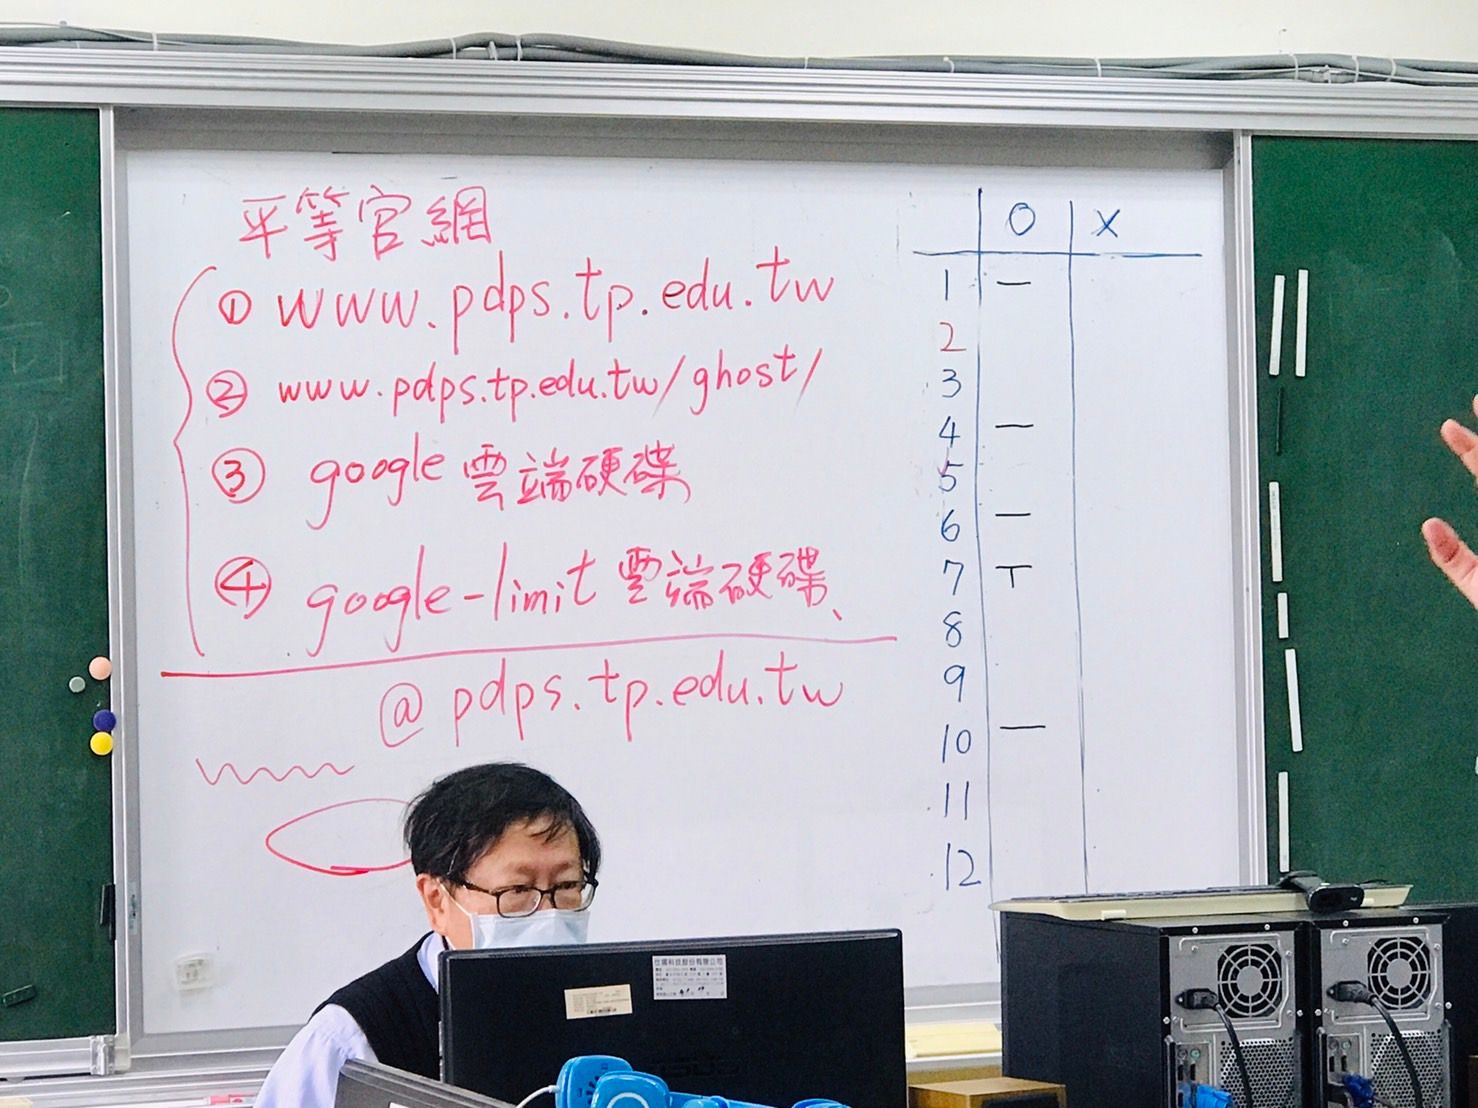 平等官網
① www.pdps.tp.edu.tw
② www.pdps.tp.edu.tw/ghost/
③ google 雲端硬碟
④ google-limit 雲端硬碟、
@pdps.tp.edu.tw
O X
1 一
2
3
4 一
5
6 一
7 T
8
9
10 一
11
12